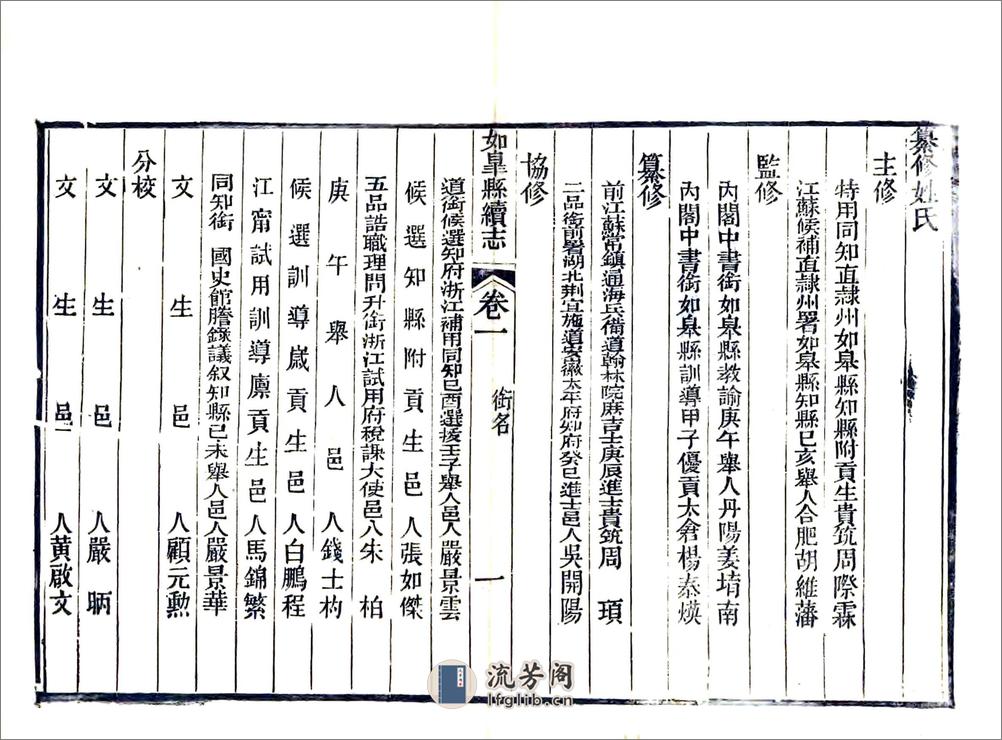 纂修姓氏
主修
特用同知直隸州如皋縣知縣附貢生貴筑周際霖
江蘇候補直隸州署如皋縣知縣己亥舉人合肥胡維藩
監修
內閣中書銜如皋縣教諭庚午舉人丹陽姜堉南
內閣中書銜如皋縣訓導甲子優貢太倉楊泰煐
纂修
前江蘇常鎮通海兵備道翰林院庶吉士庚辰進士貴筑周頊
二品銜前署湖北荊宜施道安徽太平府知府癸巳進士邑人吳開陽
協修
如皋縣續志 卷一 銜名 一
道銜候選知府浙江補用同知己酉選拔壬子舉人邑人嚴景雲
候選知縣附貢生邑人張如傑
五品誥職理問升銜浙江試用府稅課大使邑人朱柏
庚午舉人邑人錢士杓
候選訓導歲貢生邑人白鵬程
江甯試用訓導廩貢生邑人馬錦繁
同知銜 國史館謄錄議叙知縣己未舉人邑人嚴景華
文生邑人顧元勲
分校
文生邑人嚴昞
文生邑人黃啟文
流芳阁
lfglib.cn